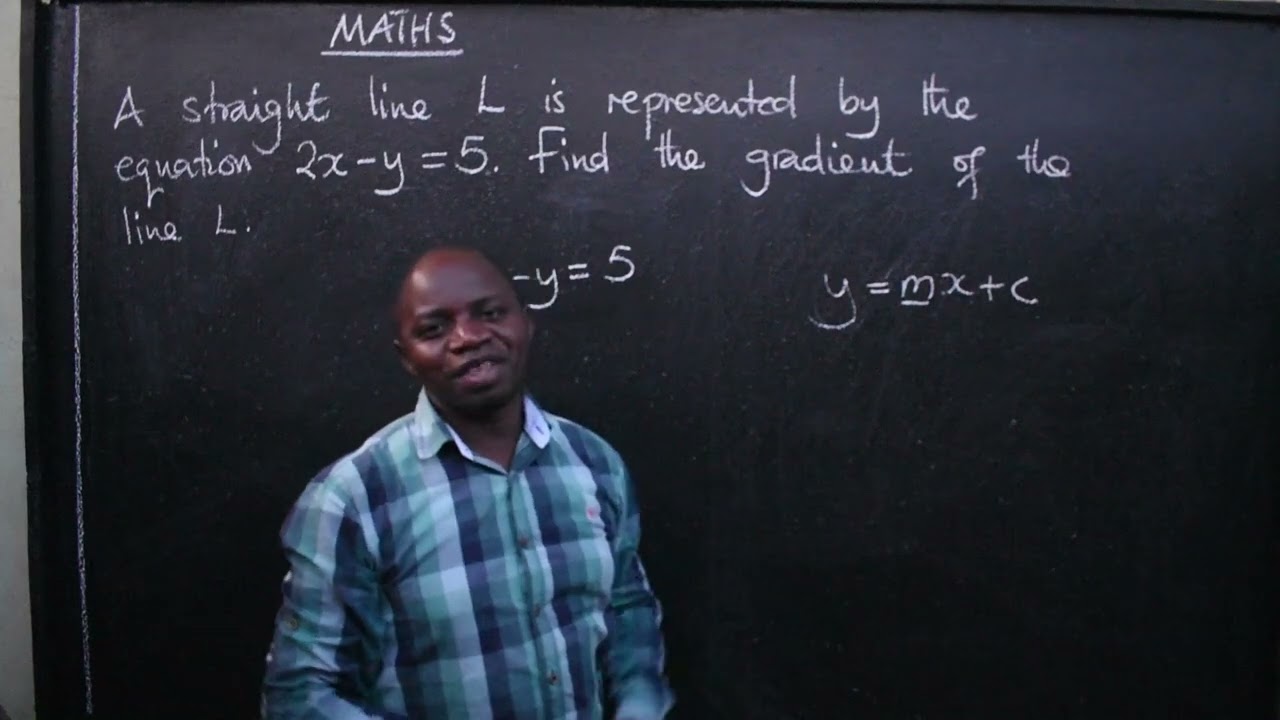 MATHS
A straight line L is represented by the
equation 2x-y=5. Find the gradient of the
line L.
-y=5
y=mx+c